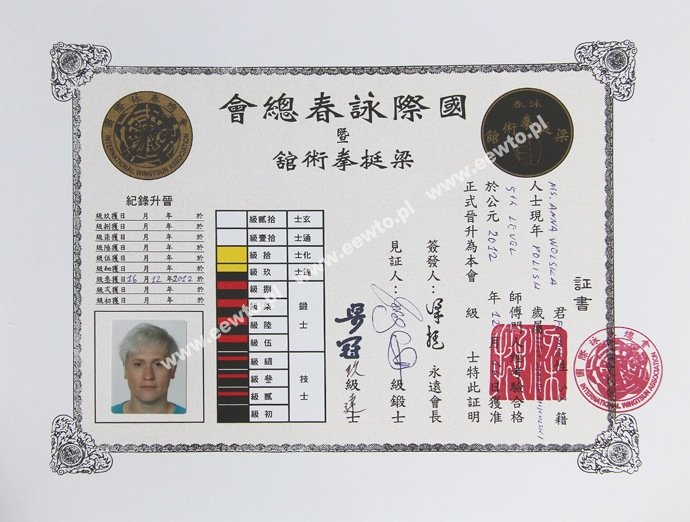 國際詠春總會
暨
梁挺拳術館
國際詠春總會
INTERNATIONAL WINGTSUN ASSOCIATION
詠春
梁挺拳術館
證書
MS. ANNA WOLSKA
人士現年 POLISH 歲
5TH LEVEL
於公元 2012 年 12 月 日獲准
正式晉升為本會 級 士特此証明
簽發人: 梁挺 永遠會長
見証人: 級鍛士
紀錄升晉
級玖獲日 月 年 於
級捌獲日 月 年 於
級柒獲日 月 年 於
級陸獲日 月 年 於
級伍獲日 月 年 於
級肆獲日 月 年 於
級叁獲日 16 月 12 年 2012 於
級弍獲日 月 年 於
級初獲日 月 年 於
級貳拾 士玄
級壹拾 士通
級拾 士化
級玖
級捌
級柒
級陸
級伍
鍛士
級肆
級叁
級貳
級初
技士
國際詠春總會
INTERNATIONAL WINGTSUN ASSOCIATION
www.eewto.pl
www.eewto.pl
www.eewto.pl
www.eewto.pl